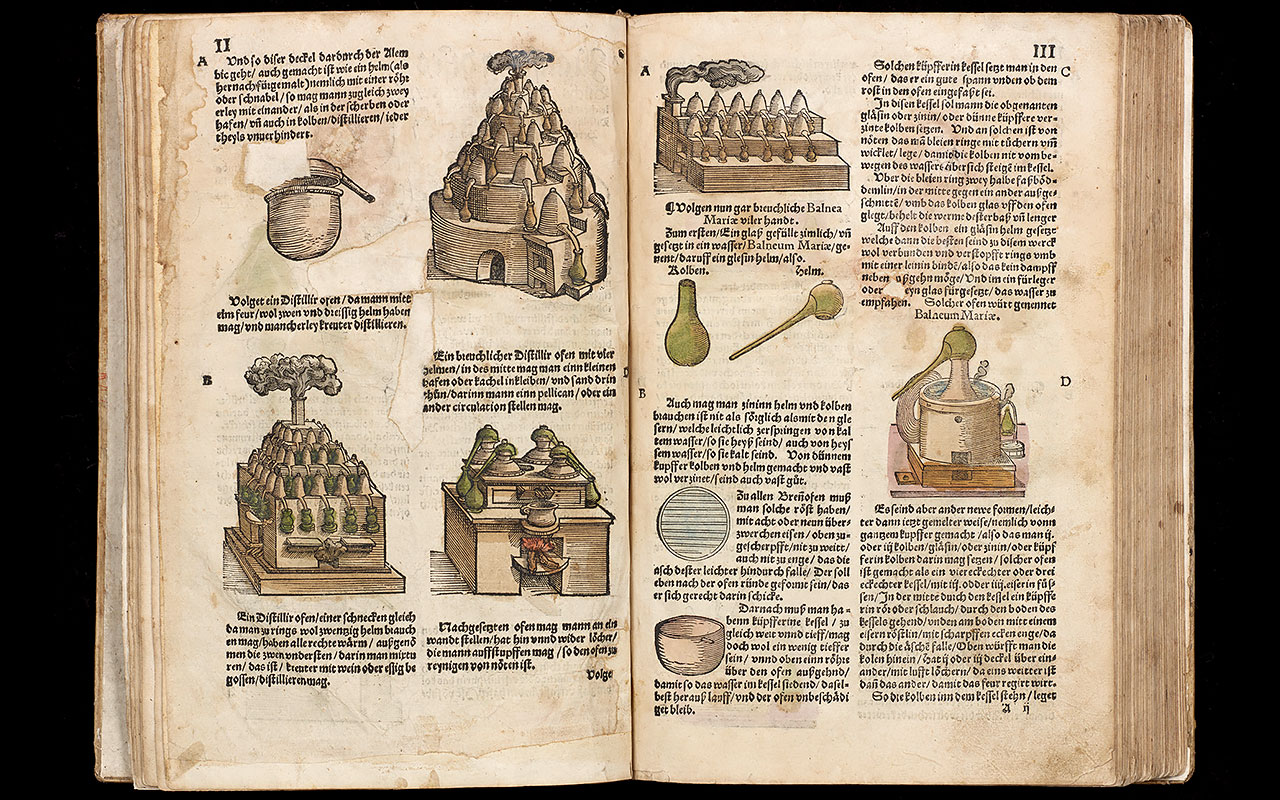 II
A
Vnd so diser deckel dardurch der Alem
bic geht / auch gemacht ist wie ein helm (als
hernachfürgemalt) nemlich mit einer röht
oder schnabel / so mag mann zugleich zwey
erley mit einander / als in der scherben oder
hafen / vñ auch in kolben / distillieren / ieder
theyls vnuerhindert.
Volget ein Distillir ofen / da mann mit
elm feur / wol zwen vnd dreissig helm haben
mag / vnd mancherley kreuter distillieren.
B
Ein Distillir ofen / einer schnecken gleich
da man zu rings wol zwenzig helm brauch
en mag / haben alle rechte wärm / außgenō
men die zwen vndersten / darin man mixtu
ren / das ist / kreuter mit wein oder essig be
gossen / distillieren mag.
Ein breuchlicher Distillir ofen mit vier
helmen / in des mitte mag man einn kleinen
hafen oder kachel inkleiben / vnd sand drin
thün / darinn mann einn pellican / oder ein
ander circulation stellen mag.
Nachgesetzten ofen mag mann an ein
wandt stellen / hat hin vnnd wider löcher /
die mann auffstupffen mag / so den ofen zu
reynigen von nöten ist.
Volge
III
A
¶Volgen nun gar breuchliche Balnea
Mariæ viler handt.
Zum ersten / Ein glaß gefülle zimlich / vñ
gesetzt in ein wasser / Balneum Mariæ / ge-
nent / daruff ein glesin helm / also.
Kolben. Helm.
B
Auch mag man zininn helm vnd kolben
brauchen ist nit als sörglich als mit den gle
sern / welche leichtlich zerspringen von kal
tem wasser / so sie heyß seind / auch von heys
sem wasser / so sie kalt seind. Von dünnem
kupffer kolben vnd helm gemacht vnd vast
wol verzinet / seind auch vast gůt.
Zu allen Breñofen muß
man solche röst haben /
mit acht oder neun über-
zwerchen eisen / oben zu-
gescherpfft / nit zu weitt /
auch nit zu enge / das die
asch dester leichter hindurch falle / Der soll
eben nach der ofen ründe geformt sein / das
er sich gerecht darin schicke.
Darnach muß man ha-
benn küpfferine kessel / zu
gleich weit vnnd tieff / mag
doch wol ein wenig tieffer
sein / vnnd oben einn röhrt
über den ofen außgehnd /
damit so das wasser im kessel siedend / dasel-
best herauß lauff / vnd der ofen vnbeschädi
get bleib.
C
Solchen küpfferin kessel setzt man in den
ofen / das er ein gute spann vnden ob dem
rost in den ofen eingefaßt sei.
In disen kessel sol mann die obgenanten
gläsin oder zinin / oder dünne küpffere ver-
zinte kolben setzen. Vnd an solchen ist von
nöten das mā bleien ringe mit tüchern vm̄
wicklet / lege / damit die kolben nit vom be-
wegen des wassers übersich steigē im kessel.
Vber die bleien ring zwey halbe faßböd-
demlin / in der mitte gegen ein ander außge-
schnittē / vmb das kolben glas vff den ofen
glegt / behelt die werme desterbaß vñ lenger
Auff den kolben ein gläsin helm gesetzt
welche dann die besten seind zu disem werck
wol verbunden vnd verstopfft rings vmb
mit einer leinin bindē / also das kein dampff
neben außgehn möge / Vnd in ein fürleger
oder eyn glas fürgesetzt / das wasser zu
empfahen. Solcher ofen würt genennet
Balneum Mariæ.
D
Es seind aber ander newe formen / leich-
ter dann ietzt gemelter weise / nemlich vonn
gantzem kupffer gemacht / also das man ij.
oder iij kolben / gläsin / oder zinin / oder küpf
ferin kolben darin mag setzen / solcher ofen
ist gemacht als ein vier eckechter oder drei
eckechter kessel / mit iij. odder iiij. eiserin füs-
sen / In der mitte durch den kessel ein küpffe
rin rör oder schlauch / durch den boden des
kessels gehend / vnden am boden mit einem
eisern röstlin / mit scharpffen ecken enge / da
durch die äschē falle / Oben würfft man die
kolen hinein / hat ij oder iij deckel über ein-
ander / mit lufft löchern / da eins weitter ist
dañ das ander / damit das feur regirt wirt.
So die kolben inn dem kessel stehn / leget
A ij